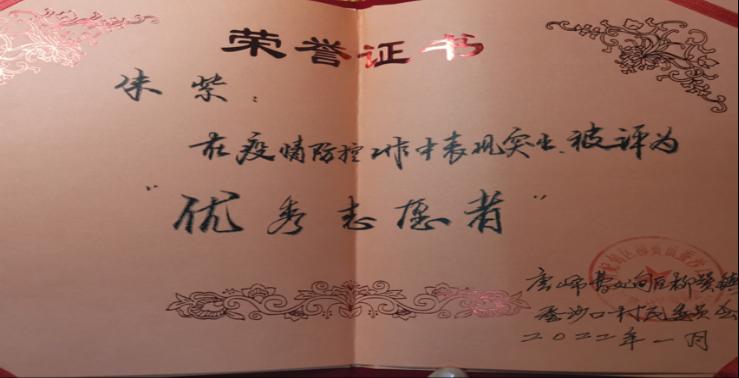 荣誉证书
朱紫：
在疫情防控工作中表现突出，被评为
“优秀志愿者”
唐山市曹妃甸区柳赞镇
蚕沙口村民委员会
二〇二二年一月